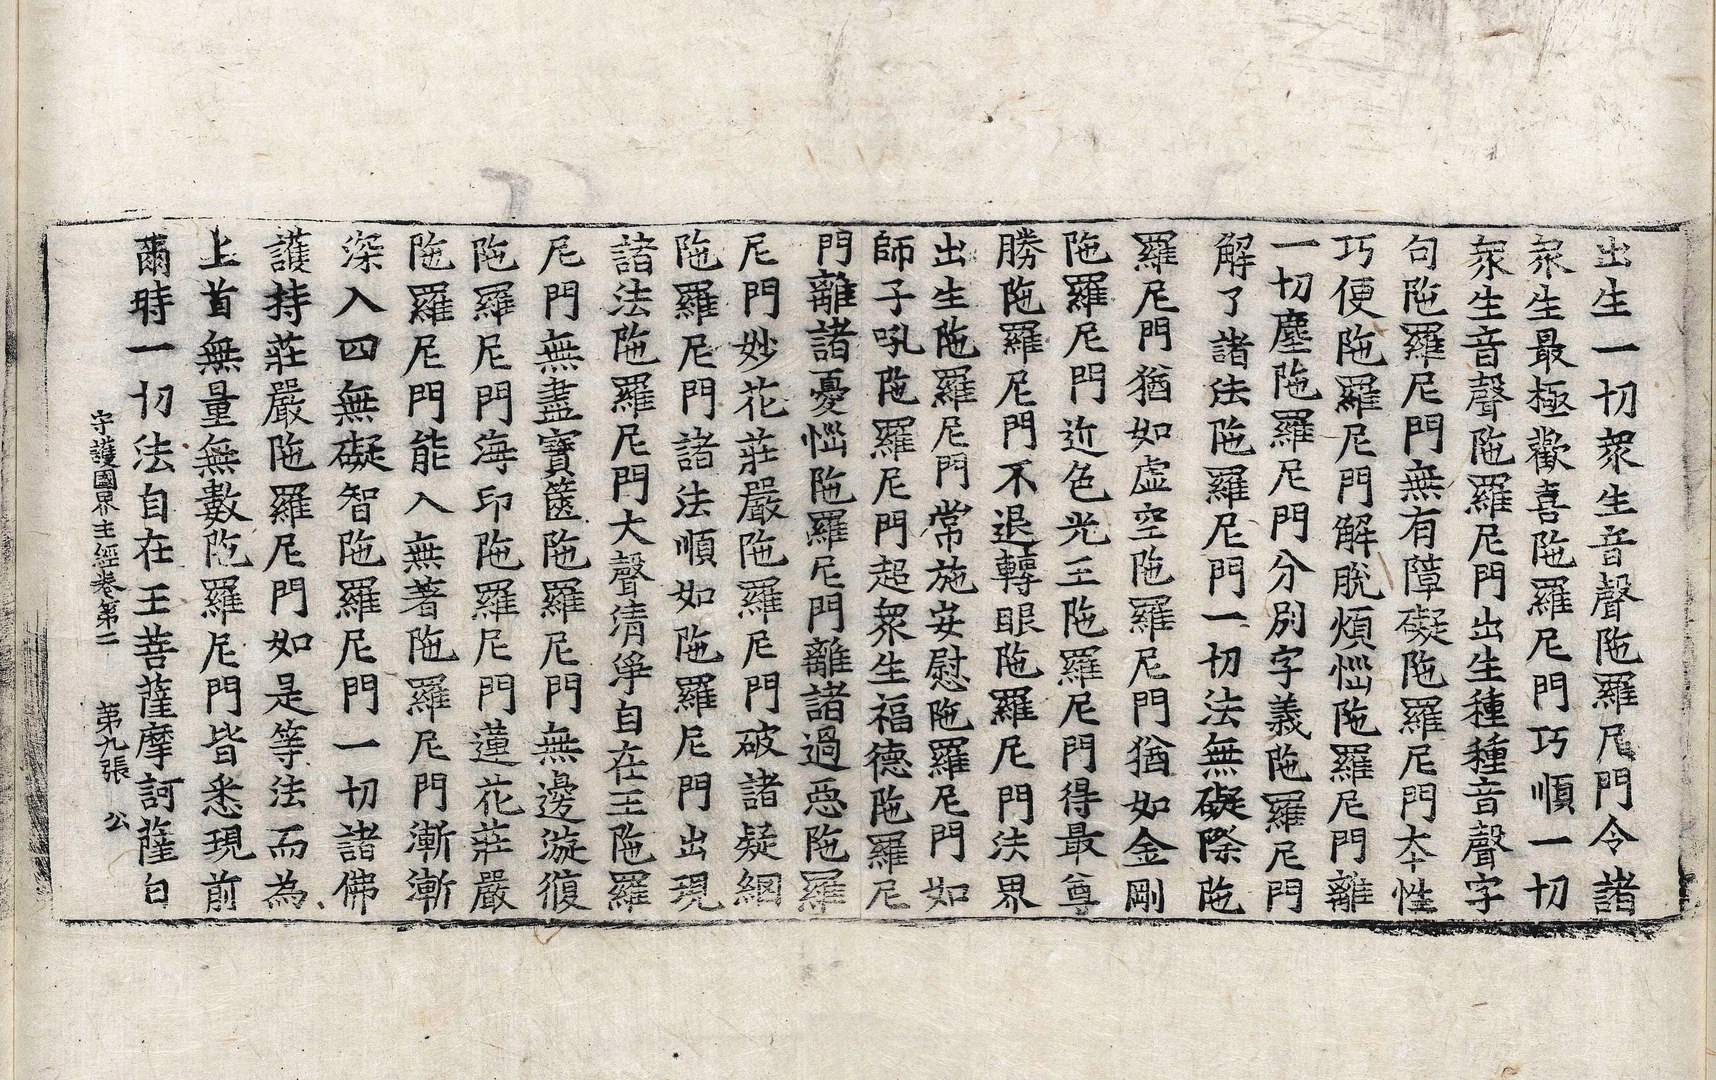 出生一切衆生音聲陁羅尼門令諸
衆生最極歡喜陁羅尼門巧順一切
衆生音聲陁羅尼門出生種種音聲字
句陁羅尼門無有障礙陁羅尼門本性
巧便陁羅尼門解脫煩惱陁羅尼門離
一切塵陁羅尼門分別字義陁羅尼門
解了諸法陁羅尼門一切法無礙際陁
羅尼門猶如虛空陁羅尼門猶如金剛
陁羅尼門近色光王陁羅尼門得最尊
勝陁羅尼門不退轉眼陁羅尼門法界
出生陁羅尼門常施安慰陁羅尼門如
師子吼陁羅尼門超衆生福德陁羅尼
門離諸憂惱陁羅尼門離諸過惡陁羅
尼門妙花莊嚴陁羅尼門破諸疑網
陁羅尼門諸法順如陁羅尼門出現
諸法陁羅尼門大聲清淨自在王陁羅
尼門無盡寶篋陁羅尼門無邊漩澓
陁羅尼門海印陁羅尼門蓮花莊嚴
陁羅尼門能入無著陁羅尼門漸漸
深入四無礙智陁羅尼門一切諸佛
護持莊嚴陁羅尼門如是等法而為
上首無量無數陁羅尼門皆悉現前
爾時一切法自在王菩薩摩訶薩白
守護國界主經卷第二 第九張 公